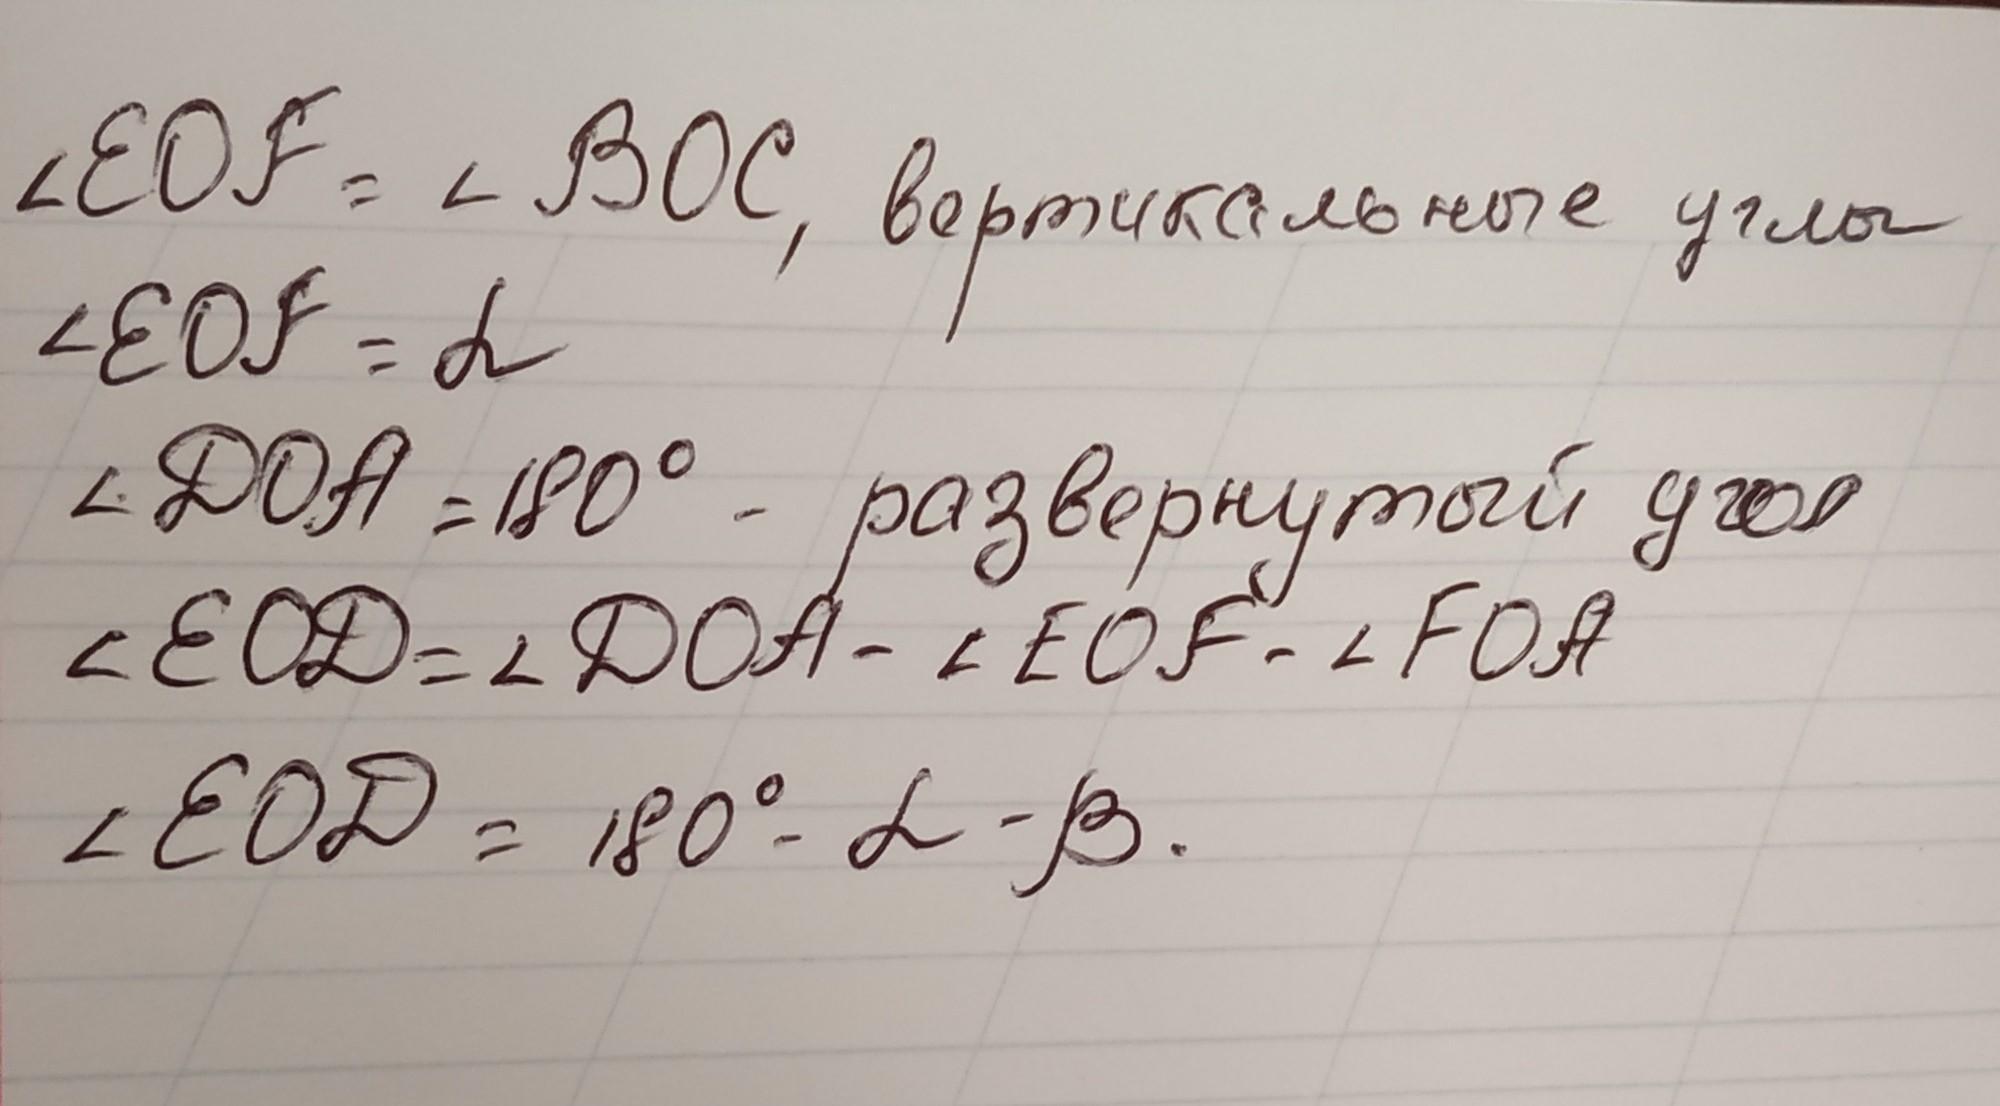 ∠EOF = ∠BOC, вертикальные углы
∠EOF = α
∠DOA = 180° - развернутый угол
∠EOD = ∠DOA - ∠EOF - ∠FOA
∠EOD = 180° - α - β.